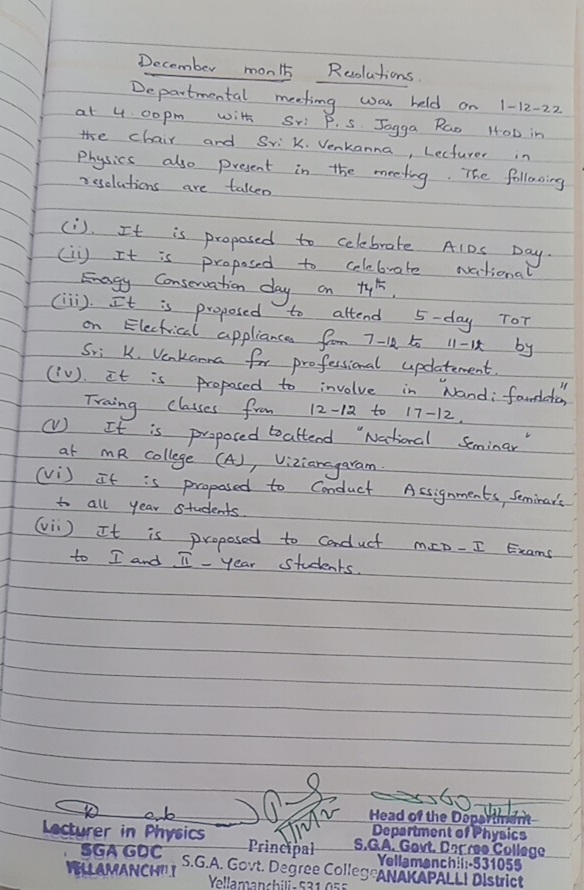 December month Resolutions.
Departmental meeting was held on 1-12-22
at 4.00pm with Sri P.S. Jagga Rao HOD in
the chair and Sri K. Venkanna, Lecturer in
Physics also present in the meeting. The following
resolutions are taken
(i). It is proposed to celebrate AIDS Day.
(ii) It is proposed to celebrate National
Enargy Conservation day on 14th.
(iii). It is proposed to attend 5-day TOT
on Electrical appliances from 7-12 to 11-12 by
Sri K. Venkanna for professional updatement.
(iv). It is proposed to involve in "Nandi foundation"
Traing classes from 12-12 to 17-12.
(v) It is proposed to attend "National Seminar"
at MR College (A), Vizianagaram.
(vi) It is proposed to Conduct Assignments, Seminars
to all year students.
(vii) It is proposed to conduct MID-I Exams
to I and II - year students.
Lecturer in Physics
SGA GDC
YELLAMANCHILI
Principal
S.G.A. Govt. Degree College
Yellamanchili-531 055
Head of the Department
Department of Physics
S.G.A. Govt. Degree College
Yellamanchili-531055
ANAKAPALLI District